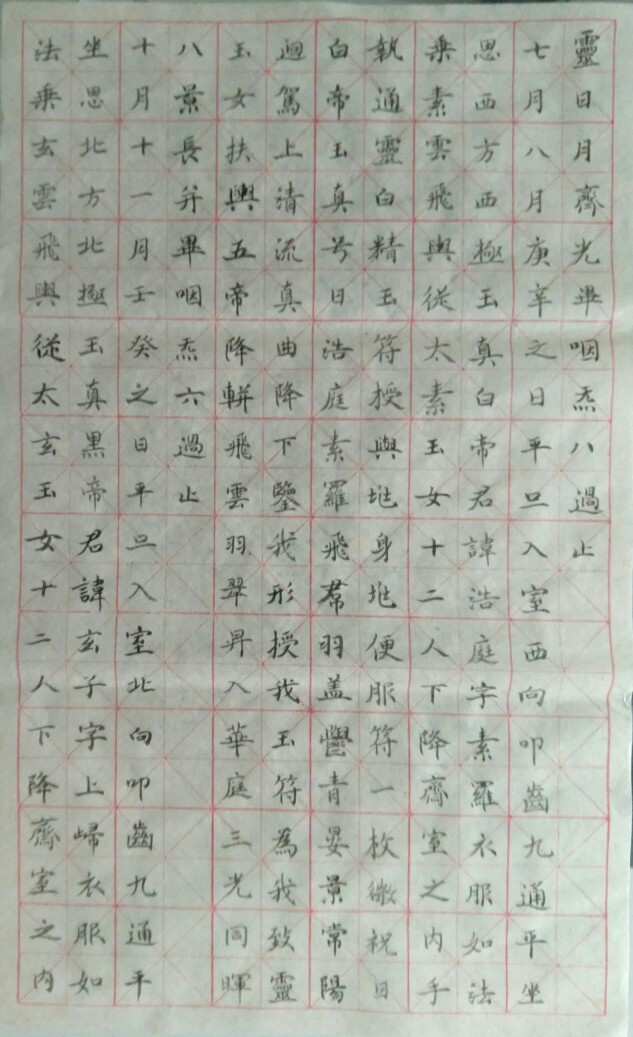 靈日月齊光畢咽炁八過止
七月八月庚辛之日平旦入室西向叩齒九通平坐
思西方西極玉真白帝君諱浩庭字素羅衣服如法
乗素雲飛輿從太素玉女十二人下降齋室之內手
執通靈白精玉符授與地身地便服符一枚微祝日
白帝玉真号日浩庭素羅飛帬羽盖鬱青晏景常陽
迴駕上清流真曲降下鑒我形授我玉符為我致靈
玉女扶輿五帝降軿飛雲羽翠昇入華庭三光同暉
八景長并畢咽炁六過止
十月十一月壬癸之日平旦入室北向叩齒九通平
坐思北方北極玉真黒帝君諱玄子字上歸衣服如
法乗玄雲飛輿從太玄玉女十二人下降齋室之内